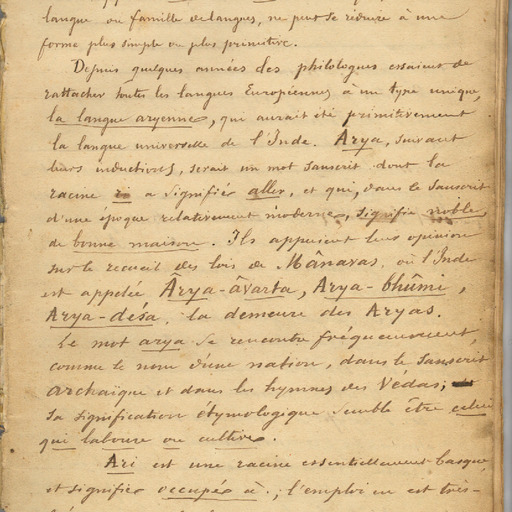 langue ou famille de langues, ne peut se réduire à une
forme plus simple ou plus primitive.
Depuis quelques années des philologues essaient de
rattacher toutes les langues Européennes à un type unique,
la langue aryenne, qui aurait été primitivement
la langue universelle de l'Inde. Arya, suivant
leurs inductions, serait un mot sanscrit dont la
racine ri a signifié aller, et qui, dans le Sanscrit
d'une époque relativement moderne, signifie noble,
de bonne maison. Ils appuient leur opinion
sur le recueil des lois de Mânavas, où l'Inde
est appelée Ârya-âvarta, Arya-bhûmi,
Arya-désa, la demeure des Aryas.
Le mot arya se rencontre fréquemment,
comme le nom d'une nation, dans le Sanscrit
archaïque et dans les hymnes des Védas;
sa signification étymologique semble être celui
qui laboure ou cultive.
Ari est une racine essentiellement basque
et signifie occupés à; l'emploi en est très-